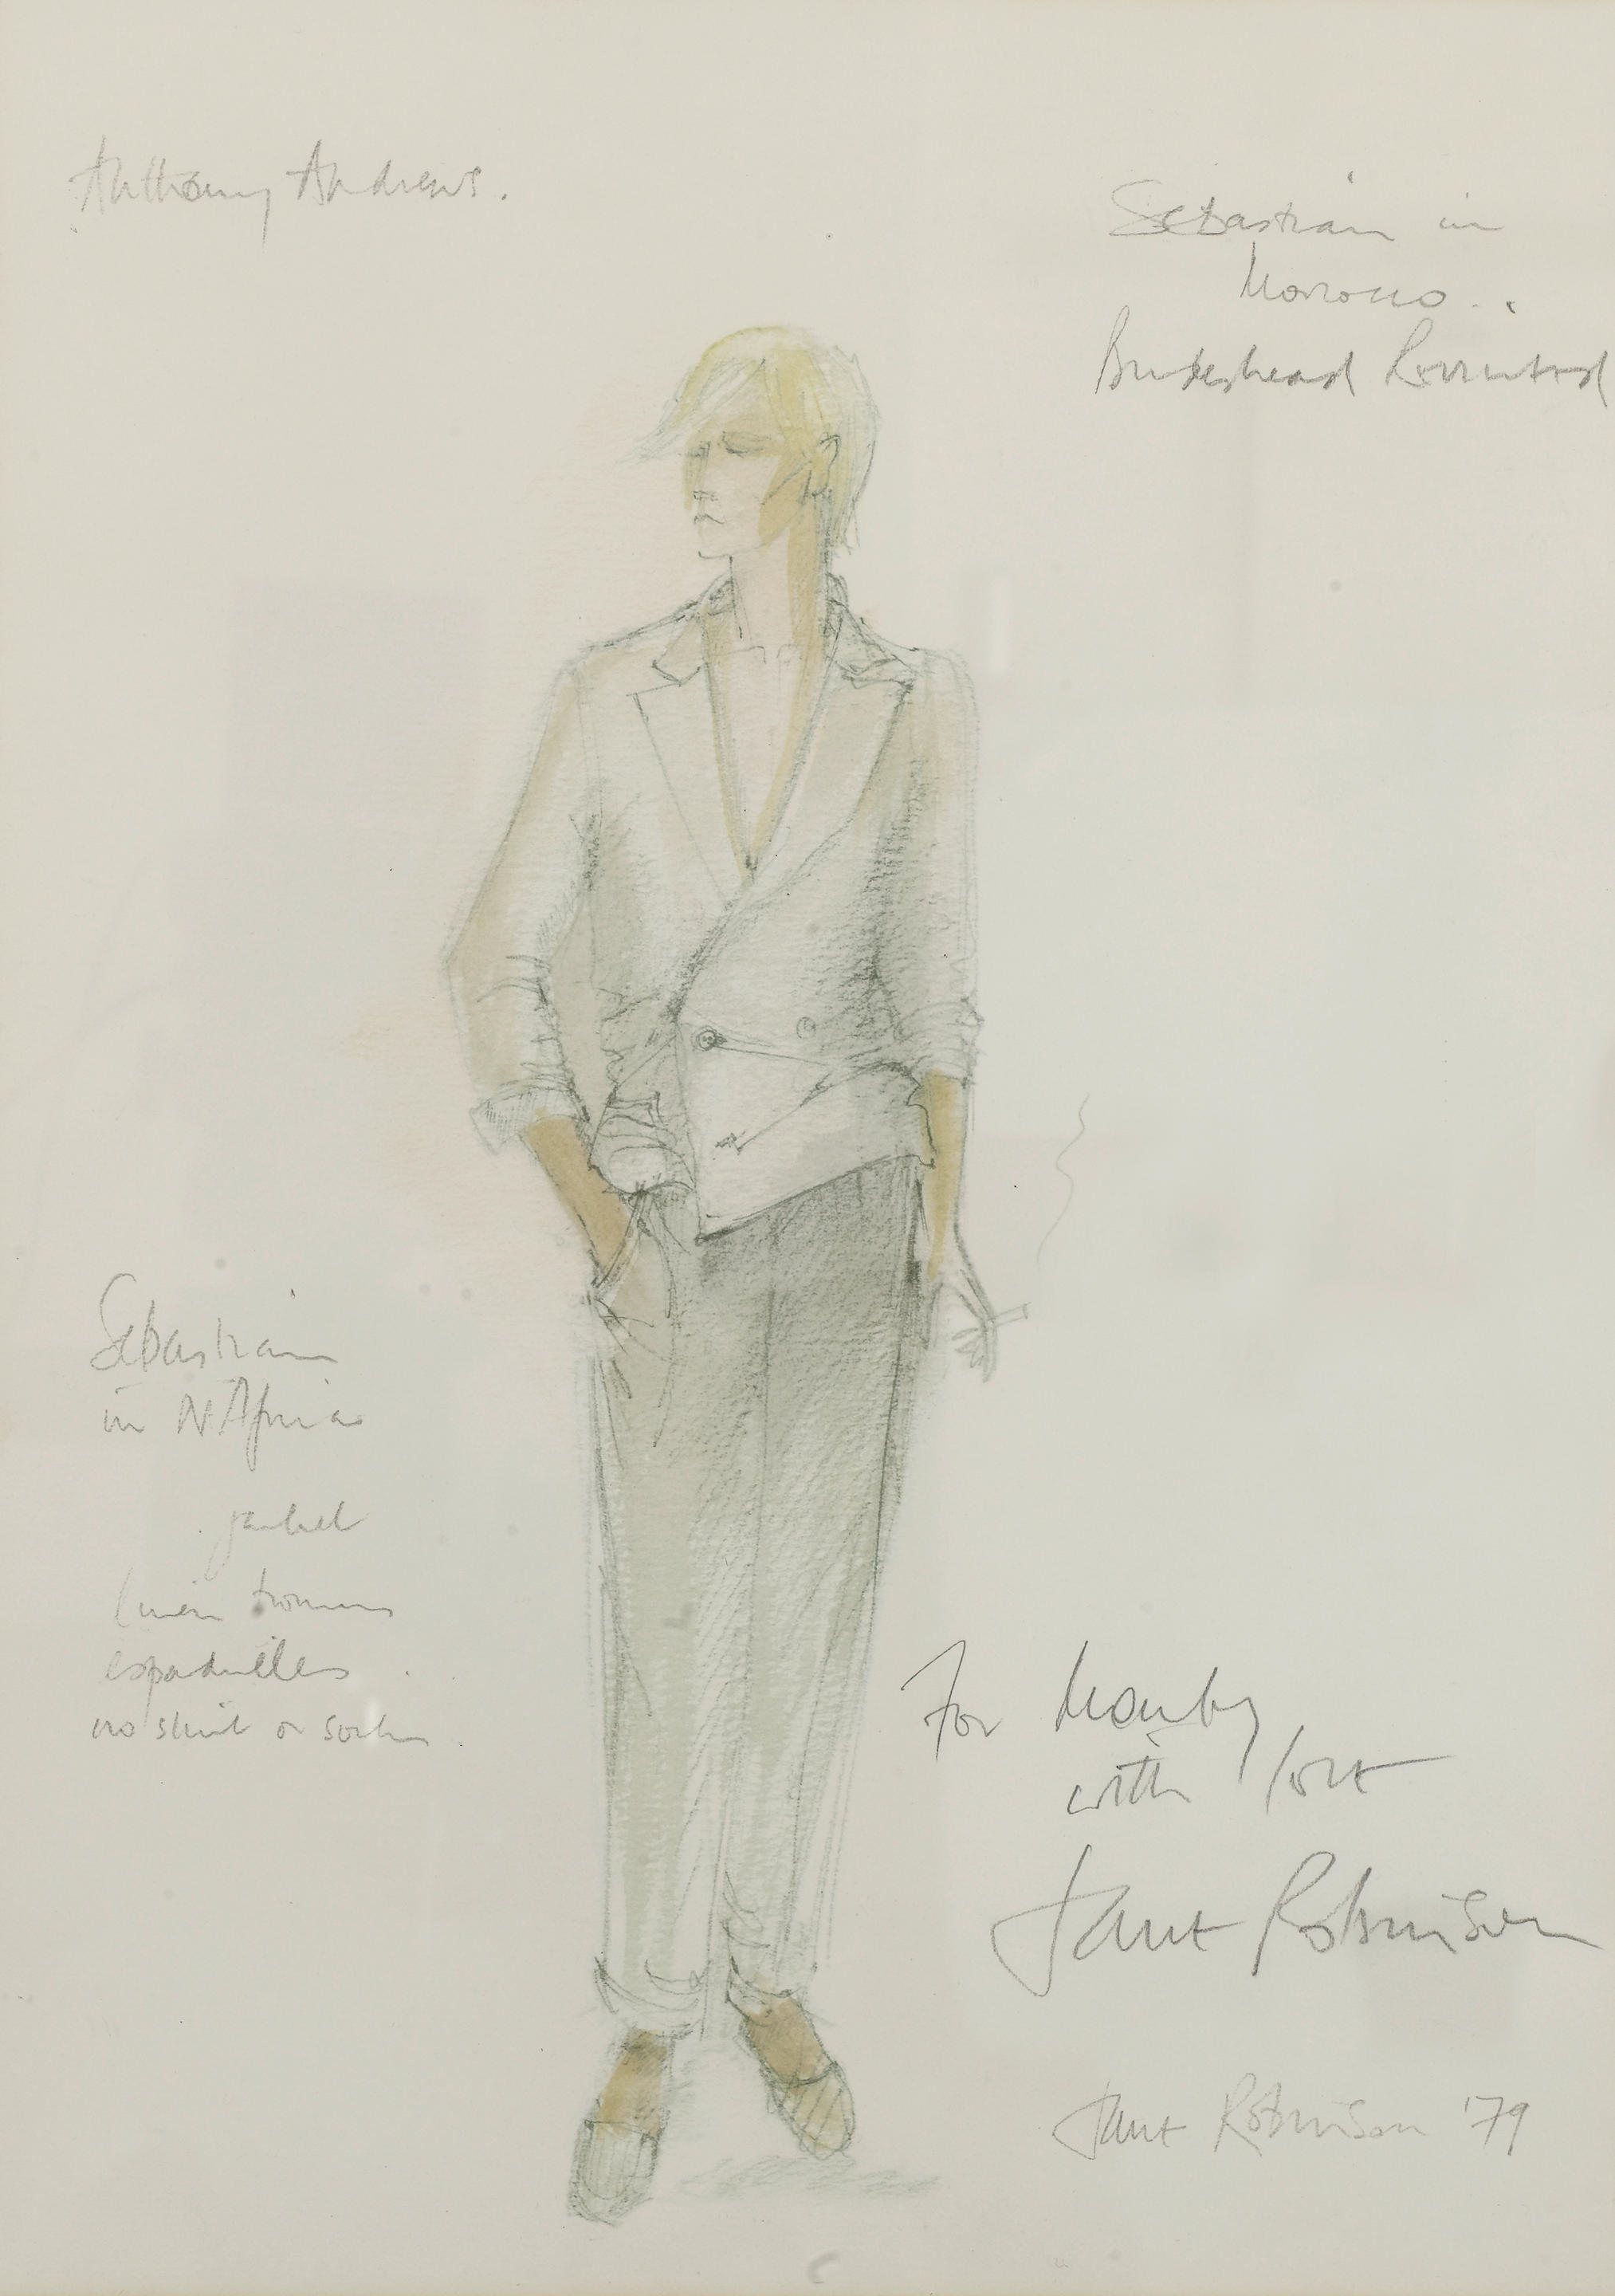 Anthony Andrews.
Sebastian in
Morocco..
Brideshead Revisited
Sebastian
in N Africa
jacket
linen trousers
espadrilles
no shirt or socks.
For
with love
Jane Robinson
Jane Robinson '79